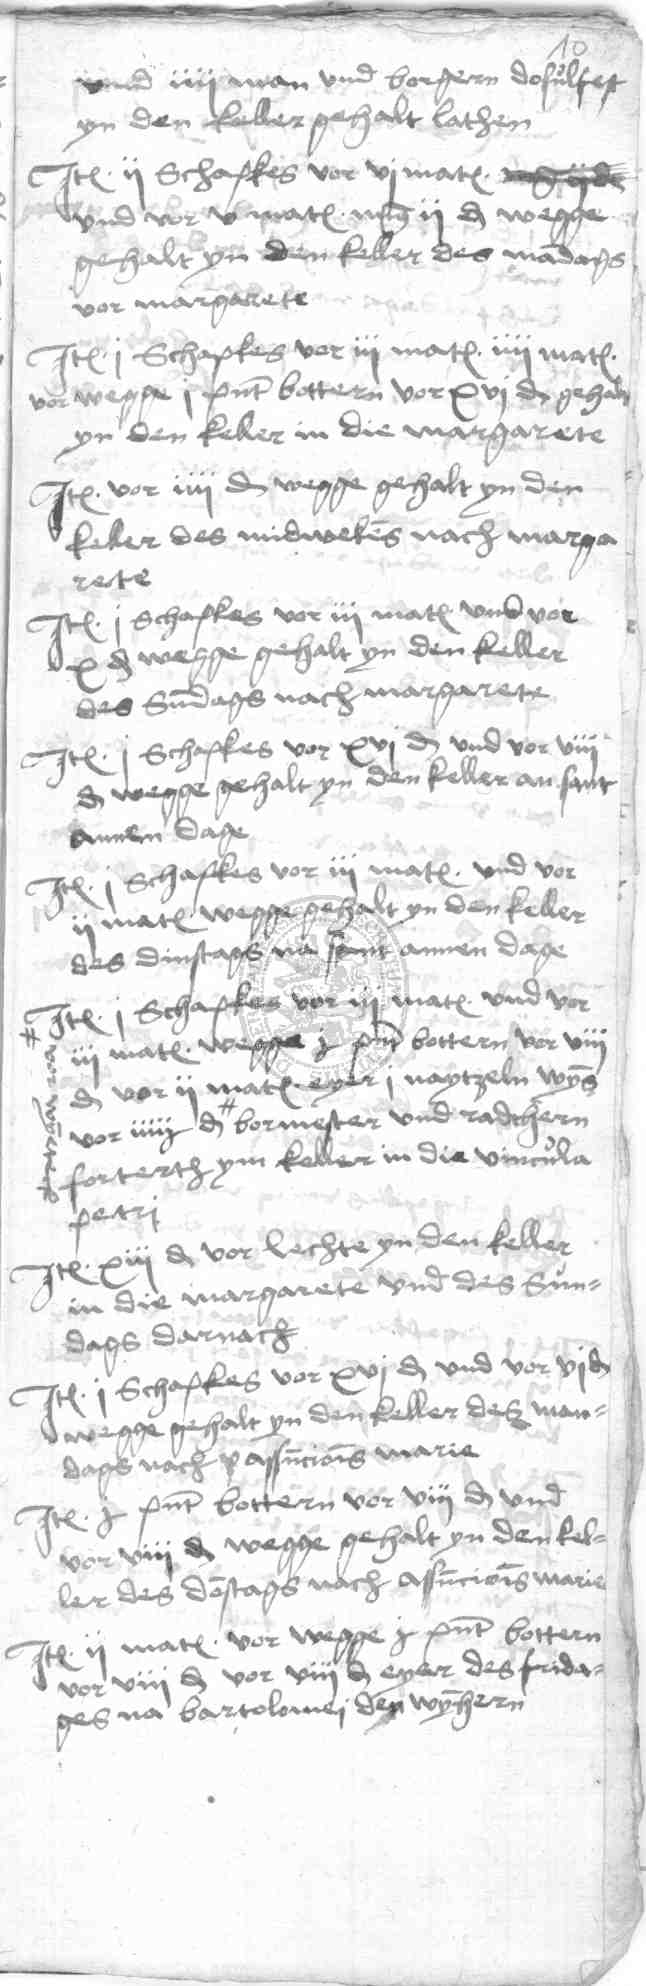 10
vnnd iiij man vnd borgern dosuluest
yn den keller gehalt lathen
Jtē. ij Schafkes vor vj matē.
vnd vor v matē. mȳg ij ₰ wegge
gehalt yn den keller des mādags
vor margarete
Jtē. j Schafkes vor iij matē. iiij matē.
vor wegge j punt bottern vor xvj ₰ gehalt
yn den keller in die margarete
Jtē. vor iiij ₰ wegge gehalt yn den
keller des midwekes nach marga
rete
Jtē. j Schafkes vor iij matē. vnd vor
x ₰ wegge gehalt yn den keller
des Sūdags nach margarete
Jtē. j Schafkes vor xvj ₰ vnd vor viij
₰ wegge gehalt yn den keller an sant
annen dage
Jtē. j Schafkes vor iij matē. vnd vor
ij matē. wegge gehalt yn den keller
des dinstags na sant annen dage
Jtē. j Schafkes vor iij matē. vnd vor
iij matē. wegge j punt bottern vor viij
₰ vor ij matē. eyer j
vor iiij ₰ # bormester vnd radthern
ym keller in die vincula
petri
Jtē. xiij ₰ vor lechte yn den keller
in die margarete vnd des Sun=
dags darnach
Jtē. j Schafkes vor xvj ₰ vnd vor vj ₰
wegge gehalt yn den keller des man=
dags nach assūcioīs marie
Jtē. j punt bottern vor viij ₰ vnd
vor viij ₰ wegge gehalt yn den kel=
ler des dōstags nach assūcioīs marie
Jtē. ij matē. vor wegge j punt bottern
vor viij ₰ vor viij ₰ eyer des frida=
ges na bartolomei den wȳhern